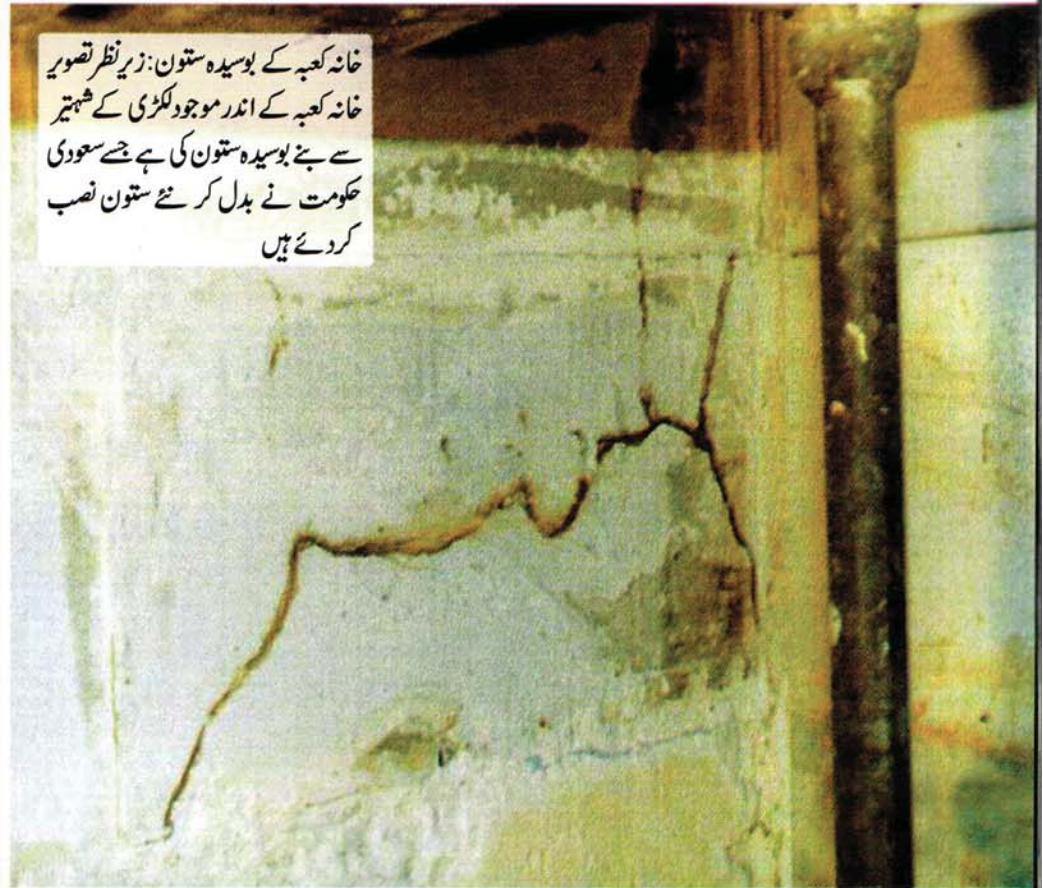 خانہ کعبہ کے بوسیدہ ستون: زیر نظر تصویر
خانہ کعبہ کے اندر موجود لکڑی کے شہتیر
سے بنے بوسیدہ ستون کی ہے جسے سعودی
حکومت نے بدل کر نئے ستون نصب
کردئے ہیں